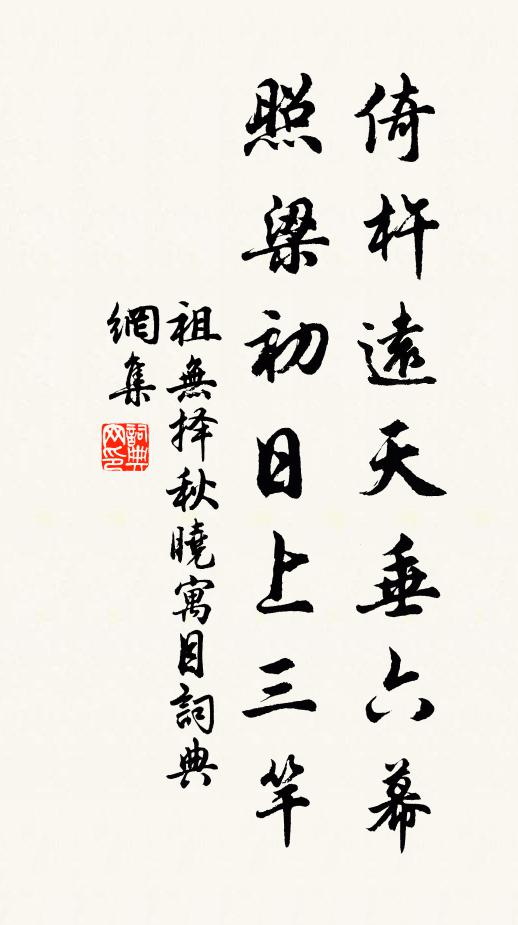 倚杵遠天垂六幕
照梁初日上三竿
祖無择秋曉寓目詞典
網集
詞典
网印